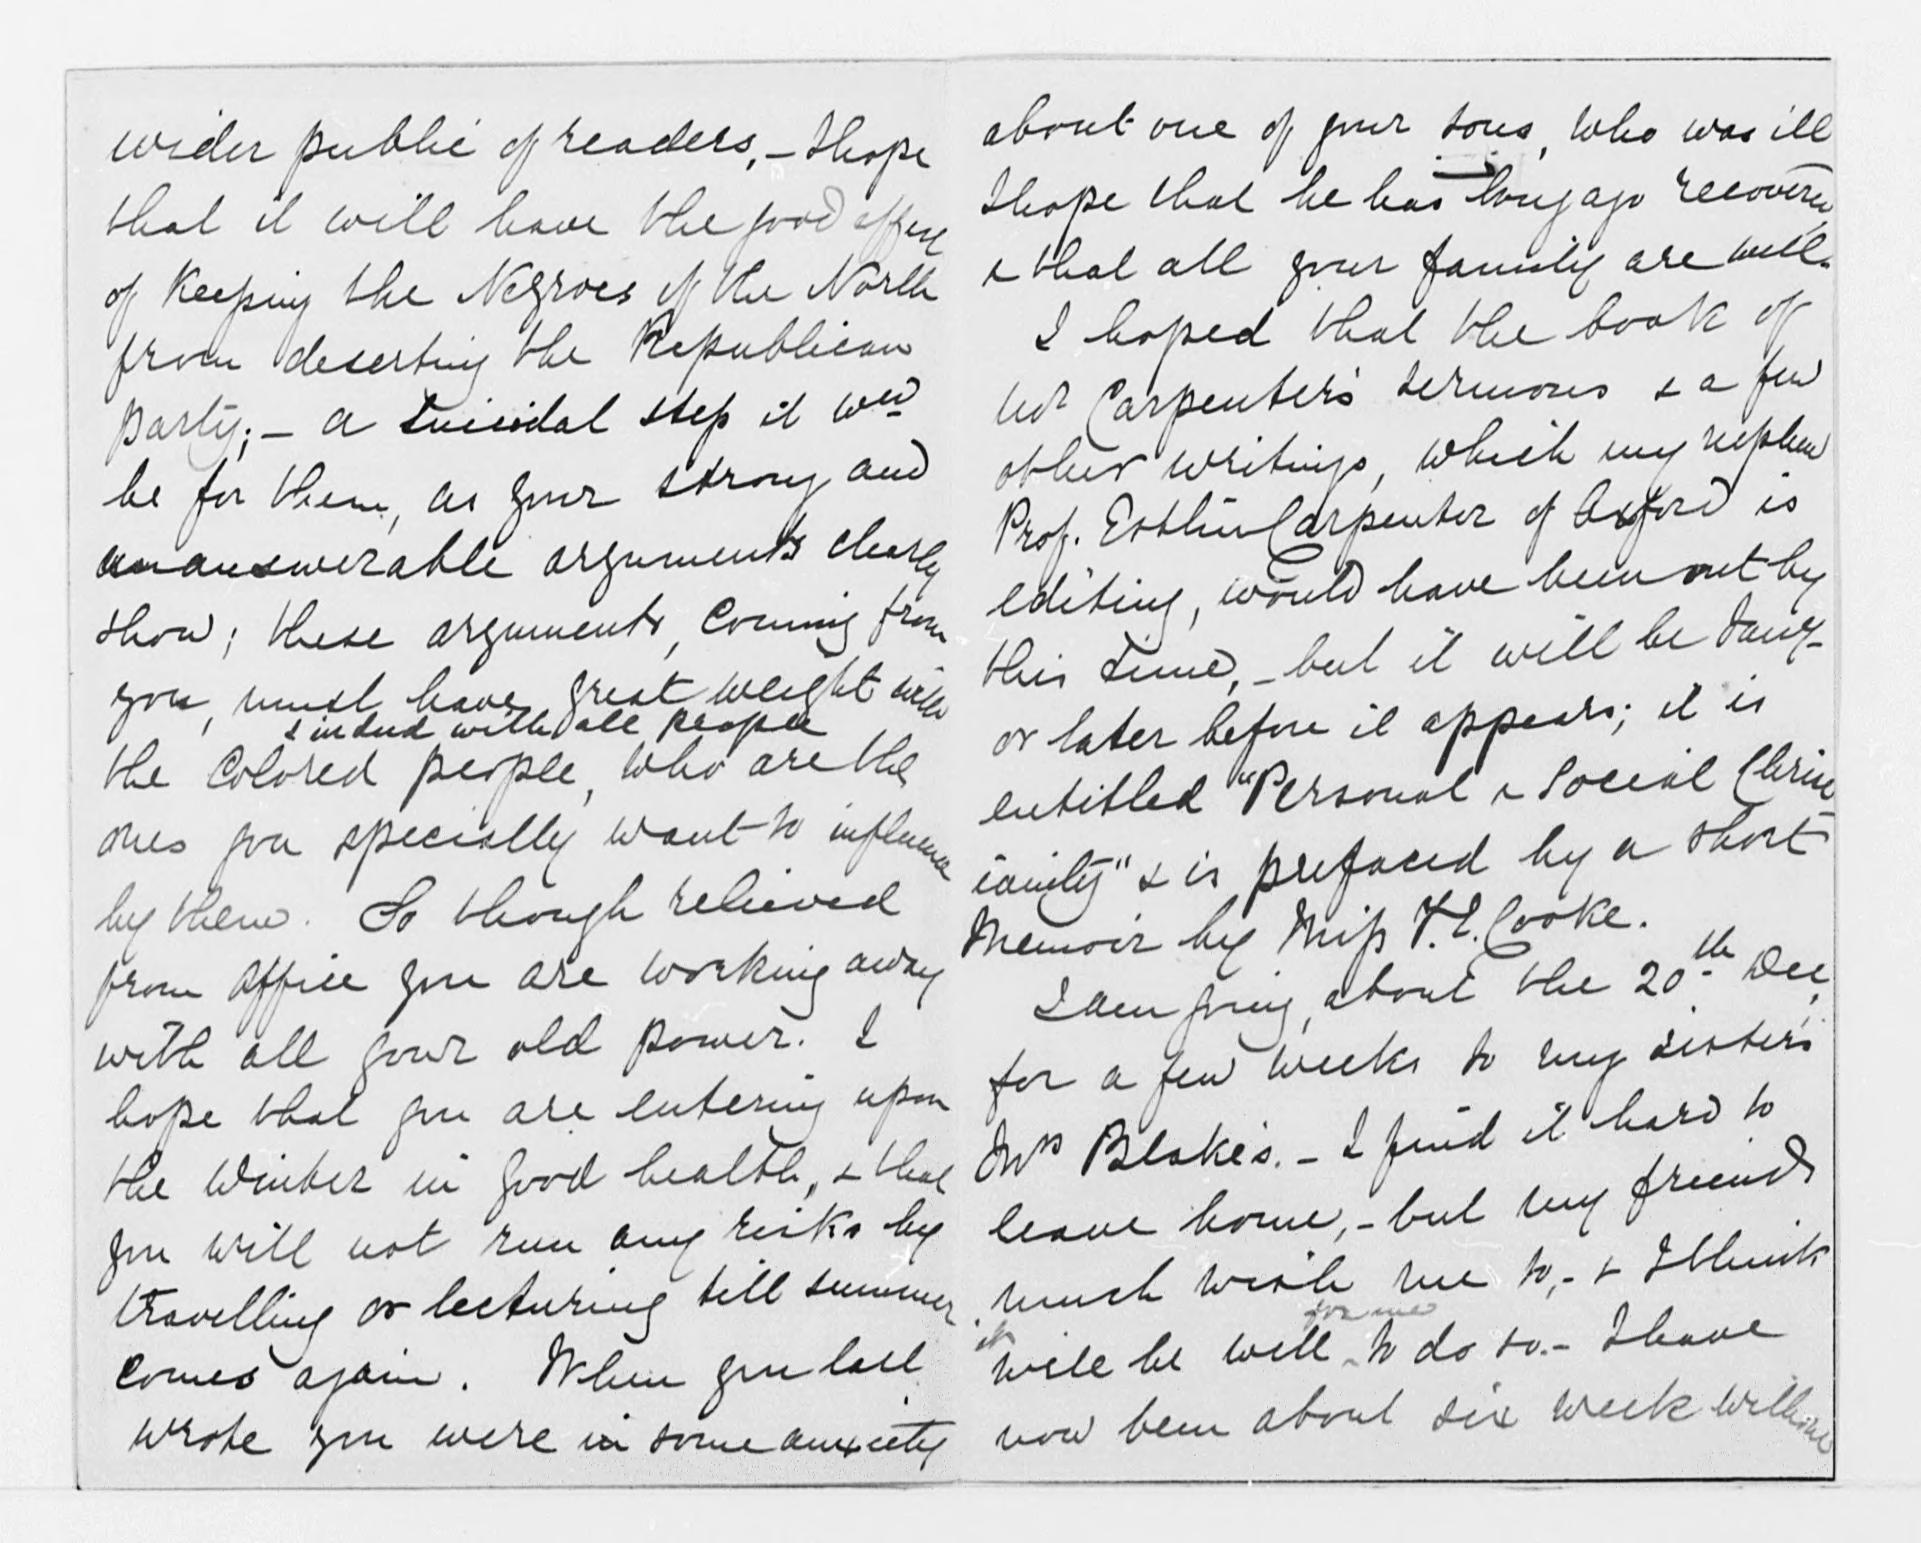 wider public of readers, – I hope
that it will have the good effect
of keeping the Negroes of the North
from deserting the Republican
party; – a suicidal step it wd
be for them, as your strong and
unanswerable arguments clearly
show; these arguments, coming from
you, must have great weight with
& indeed with all people
the colored people, who are the
ones you specially want to influence
by them. So though relieved
from office you are working away
with all your old power. I
hope that you are entering upon
the winter in good health, & that
you will not run any risks by
travelling or lecturing till summer
comes again. When you last
wrote you were in some anxiety
about one of your sons, who was ill
I hope that he has long ago recovered
& that all your family are well.
I hoped that the book of
Carpenter's sermons & a few
other writings, which my nephew
Prof. Estlin Carpenter of Oxford is
editing, would have been out by
this time, – but it will be Jany
or later before it appears; it is
entitled "Personal & Social Christ
ianity" & is prefaced by a short
Memoir by Miss F. E. Cooke.
I am going, about the 20th Dec,
for a few weeks to my sister's
Mrs Blake's. – I find it hard to
leave home, – but my friends
much wish me to, – & I think
it will be well for me to do so. – I have
now been about six week without